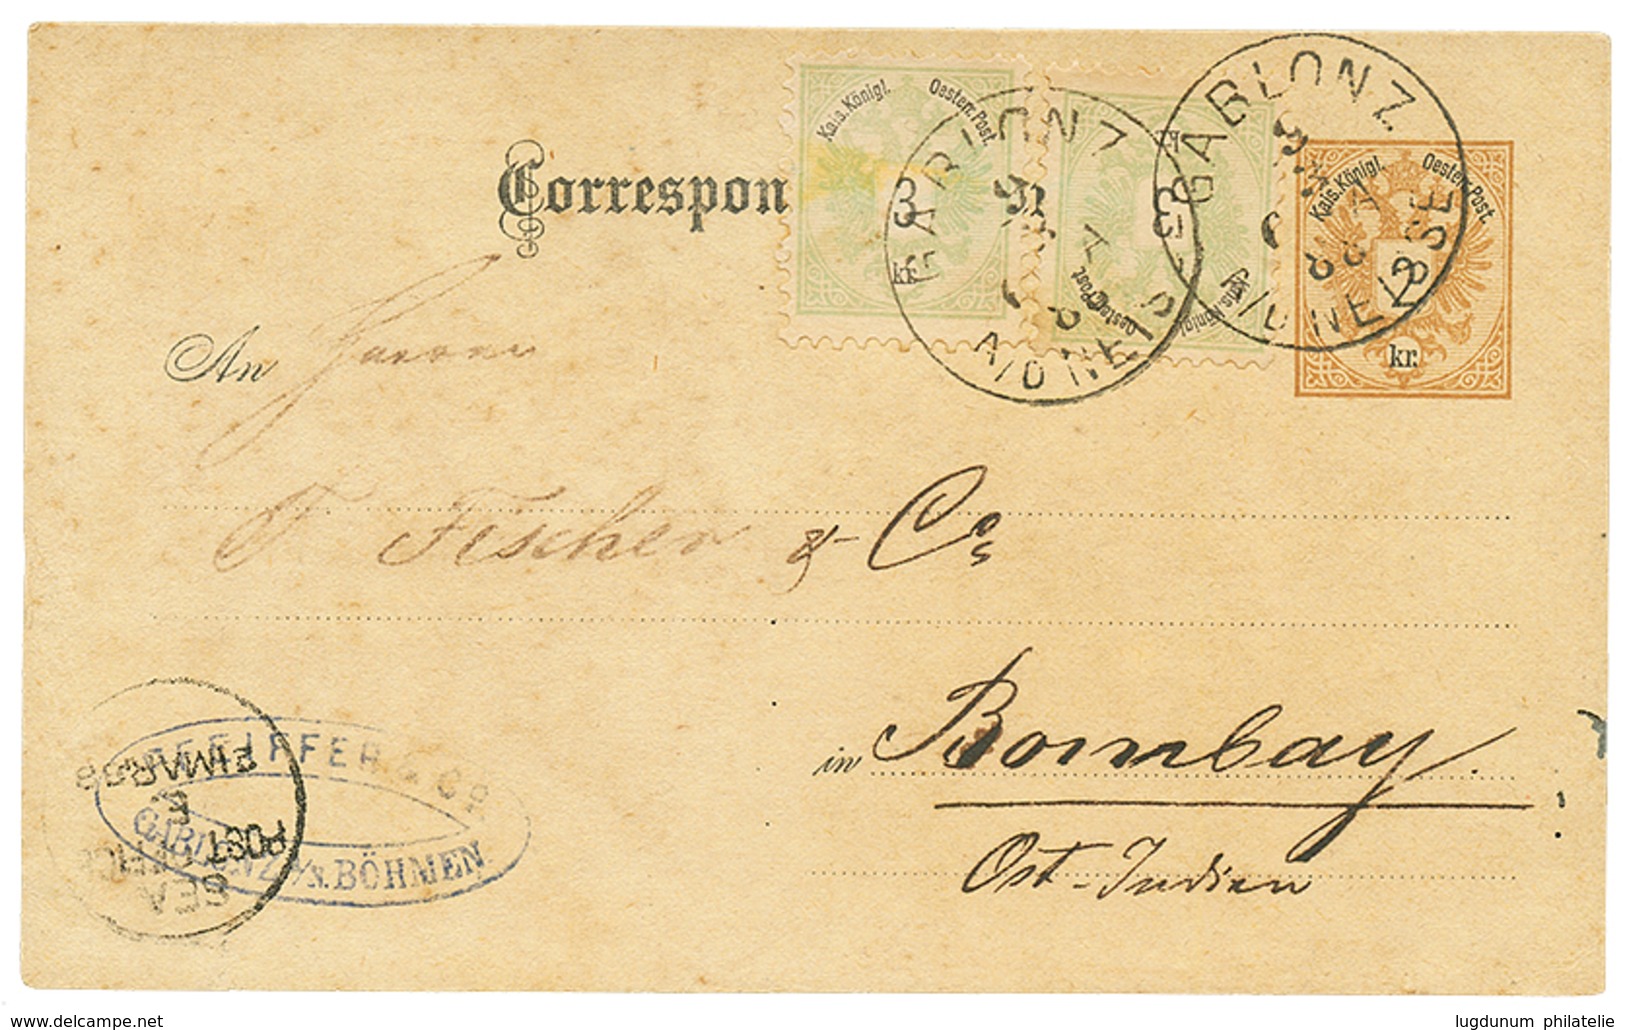 Correspon
Kais. Königl. Oesterr. Post.
3
kr.
Kais. Königl. Oesterr. Post.
3
GABLONZ
A/D NEISSE
GABLONZ
A/D NEISSE
Kais. Königl. Oesterr. Post.
2
kr.
An
F. Fischer & Co
in Bombay
Ost-Indien
PFEIFFER & Co
GABLONZ A/N. BÖHMEN.
SEA
POST OFFICE
E
www.delcampe.net
lugdunum philatelie